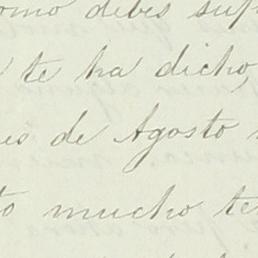 como debes sup
te ha dicho,
es de Agosto
to mucho te